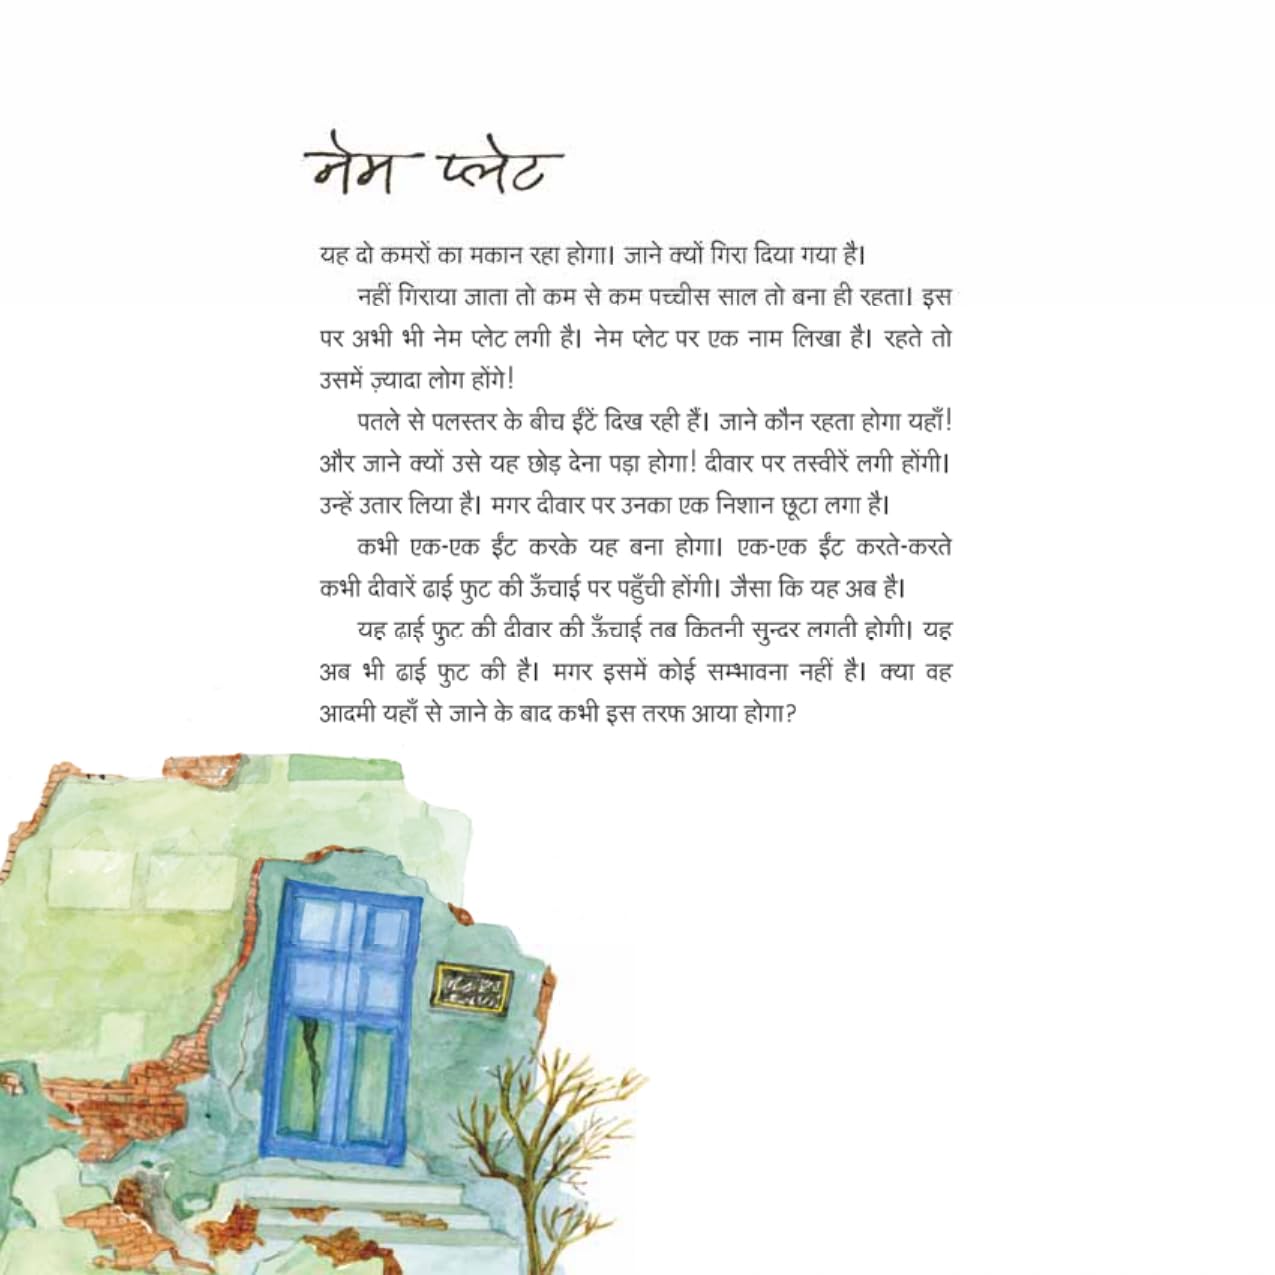 नेम प्लेट
यह दो कमरों का मकान रहा होगा। जाने क्यों गिरा दिया गया है।
नहीं गिराया जाता तो कम से कम पच्चीस साल तो बना ही रहता। इस
पर अभी भी नेम प्लेट लगी है। नेम प्लेट पर एक नाम लिखा है। रहते तो
उसमें ज़्यादा लोग होंगे!
पतले से पलस्तर के बीच ईंटें दिख रही हैं। जाने कौन रहता होगा यहाँ!
और जाने क्यों उसे यह छोड़ देना पड़ा होगा! दीवार पर तस्वीरें लगी होंगी।
उन्हें उतार लिया है। मगर दीवार पर उनका एक निशान छूटा लगा है।
कभी एक-एक ईंट करके यह बना होगा। एक-एक ईंट करते-करते
कभी दीवारें ढाई फुट की ऊँचाई पर पहुँची होंगी। जैसा कि यह अब है।
यह ढाई फुट की दीवार की ऊँचाई तब कितनी सुन्दर लगती होगी। यह
अब भी ढाई फुट की है। मगर इसमें कोई सम्भावना नहीं है। क्या वह
आदमी यहाँ से जाने के बाद कभी इस तरफ आया होगा?